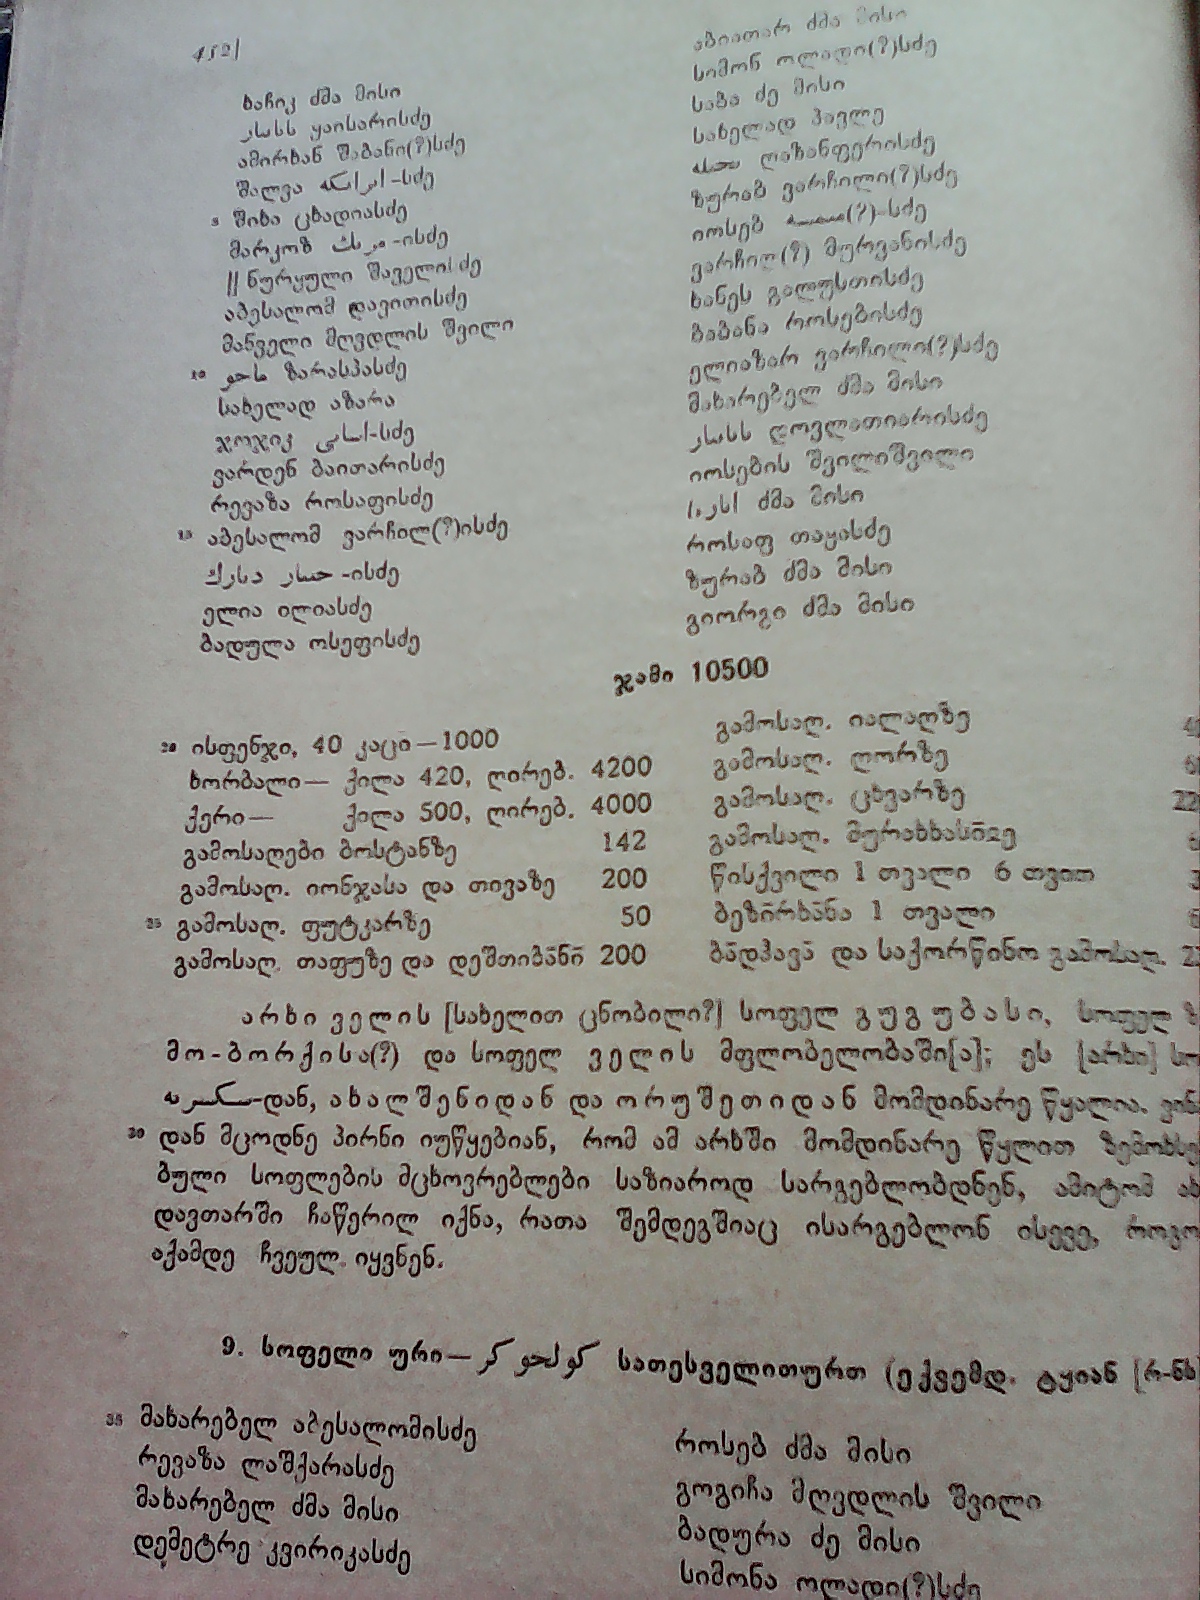 452|
ხაჩიკ ძმა მისი
ყაისარისძე
ამირხან შაბანი(?)სძე
შალვა -სძე
5 შიხა ცხადიასძე
მარკოზ -ისძე
|| ნურყული შაველისძე
აბესალომ დავითისძე
მანველი მღვდლის შვილი
10 ზარასპასძე
სახელად აზარა
ჯოჯიკ -სძე
ვარდენ ბაითარისძე
რევაზა როსაფისძე
15 აბესალომ ვარჩილ(?)ისძე
-ისძე
ელია ილიასძე
ბადულა ოსეფისძე
აბიათარ ძმა მისი
სიმონ ოლადი(?)სძე
საბა ძე მისი
სახელად პავლე
ღაზანფერისძე
ზურაბ ვარჩილი(?)სძე
იოსებ (?)-სძე
ვარჩილ(?) მურვანისძე
ხანეს გალუსთისძე
ბაბანა როსებისძე
ელიაზარ ვარჩილი(?)სძე
მახარებელ ძმა მისი
დოვლათიარისძე
იოსების შვილიშვილი
ძმა მისი
როსაფ თაყასძე
ზურაბ ძმა მისი
გიორგი ძმა მისი
ჯამი 10500
20 ისფენჯი, 40 კაცი—1000
ხორბალი— ქილა 420, ღირებ. 4200
ქერი— ქილა 500, ღირებ. 4000
გამოსაღები ბოსტანზე 142
გამოსაღ. იონჯასა და თივაზე 200
25 გამოსაღ. ფუტკარზე 50
გამოსაღ. თაფუზე და დეშთიბა̄ნი̄ 200
გამოსაღ. იალაღზე
გამოსაღ. ღორზე
გამოსაღ. ცხვარზე
გამოსაღ.
წისქვილი 1 თვალი 6 თვით
ბეზი̄რხა̄ნა 1 თვალი
ბა̄დჰავა̄ და საქორწინო გამოსაღ.
არხი ველის [სახელით ცნობილი?] სოფელ გუგუბასი, სოფელ
მო-ბორქისა(?) და სოფელ ველის მფლობელობაში[ა]; ეს [არხი]
-დან, ახალშენიდან და ორუშეთიდან მომდინარე წყალია.
30 დან მცოდნე პირნი იუწყებიან, რომ ამ არხში მომდინარე წყლით
ბული სოფლების მცხოვრებლები საზიაროდ სარგებლობდნენ, ამიტომ
დავთარში ჩაწერილ იქნა, რათა შემდეგშიაც ისარგებლონ ისევე,
აქამდე ჩვეულ იყვნენ.
9. სოფელი ური— სათესველითურთ (ექვემდ. ტყიან
35 მახარებელ აბესალომისძე
რევაზა ლაშქარასძე
მახარებელ ძმა მისი
დემეტრე კვირიკასძე
როსებ ძმა მისი
გოგიჩა მღვდლის შვილი
ბადურა ძე მისი
სიმონა ოლადი(?)სძე